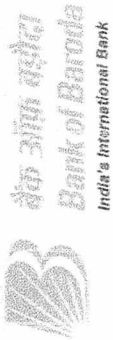 बैंक ऑफ़ बड़ौदा
Bank of Baroda
India's International Bank